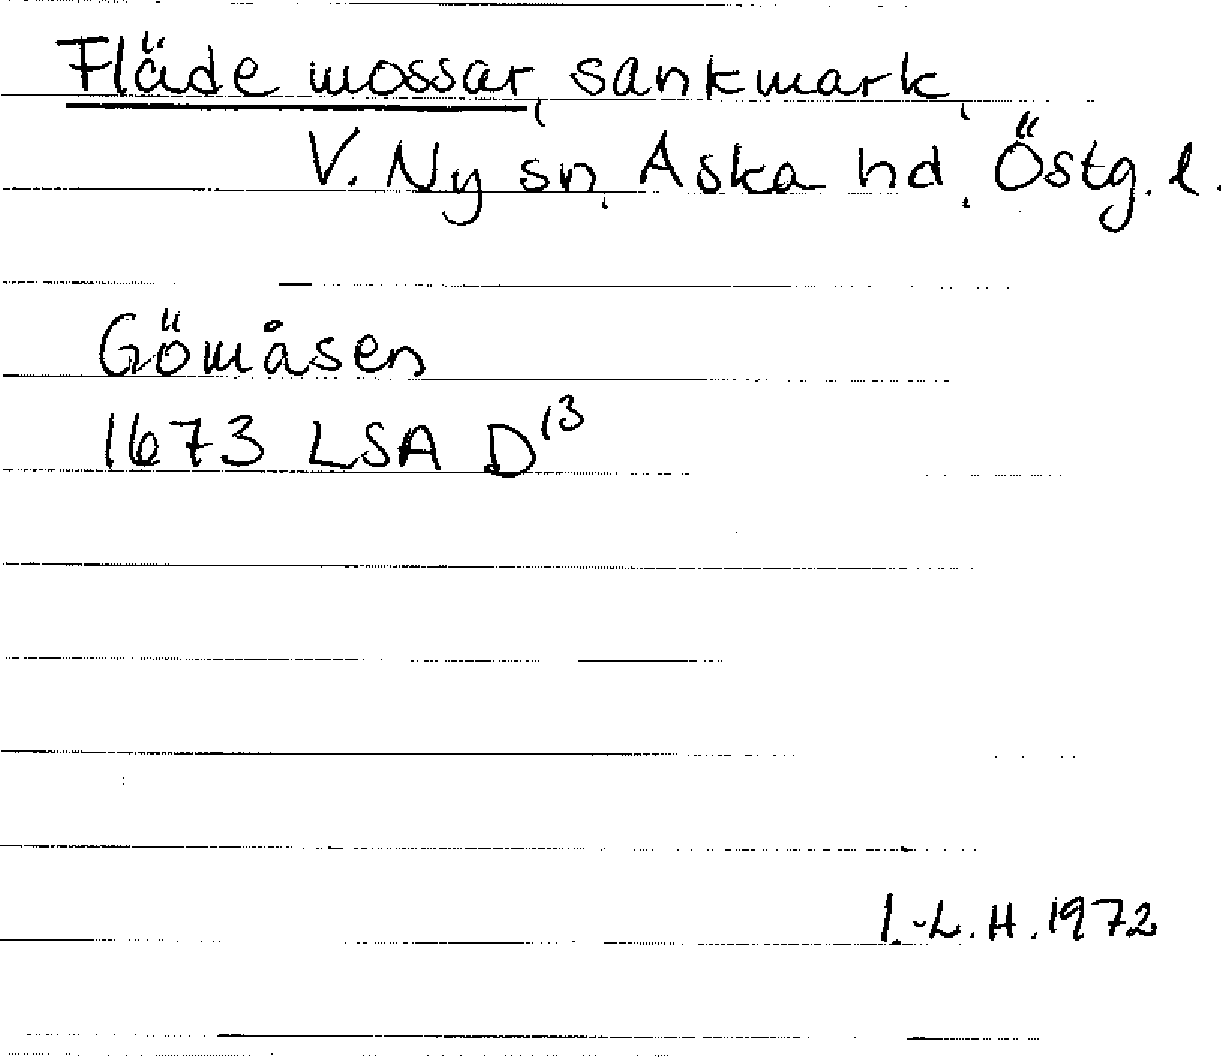 Fläde mossar, sankmark,
V. Ny sn, Aska hd, Östg. l.
Gömåsen
1673 LSA D¹³
I.-L. H. 1972